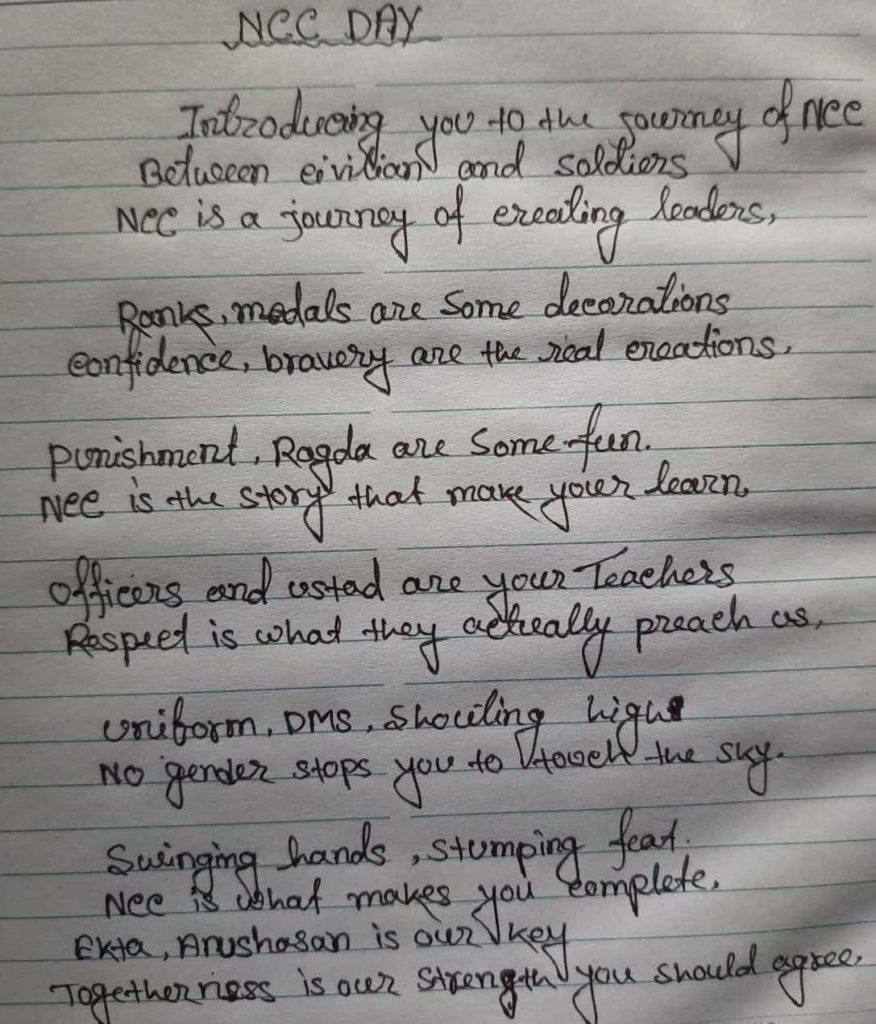 NCC DAY
Introducing you to the journey of NCC
Between civilian and soldiers
NCC is a journey of creating leaders,
Ranks, medals are some decorations
confidence, bravery are the real creations.
Punishment, Ragda are some fun.
NCC is the story that make your learn,
Officers and ustad are your Teachers
Respect is what they actually preach us,
Uniform, DMS, Shouting high
No gender stops you to touch the sky.
Swinging hands, stumping feat.
NCC is what makes you complete.
Ekta, Anushasan is our key
Togetherness is our strength you should agree.